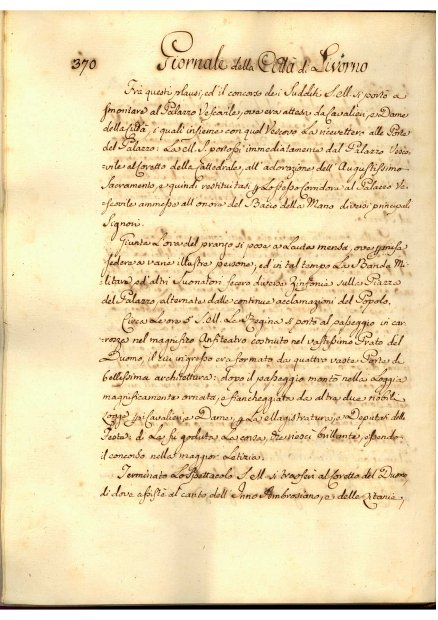 370 Giornale della Città di Livorno
Frà questi plausi, ed il concorso dei Sudditi S. M. si portò a
smontare al Palazzo Vescovile, ove era attesa da Cavalieri, e Dame
della Città, i quali insieme con quel Vescovo La riceverono alle Porte
del Palazzo: La M. S. portossi immediatamente dal Palazzo Vesco-
vile al Coretto della Cattedrale, all'adorazione dell'Augustissimo
Sacramento, e quindi restituitasi p. Lo stesso Corridore al Palazzo Ve-
scovile ammesse all'onore del Bacio della Mano diversi principali
Signori.
Giunta L'ora del pranzo si pose a Lauta mensa, ove
sedere a varie illustri persone, ed in tal tempo La Banda Mi-
litare ed altri Suonatori fecero diverse Sinfonie sulla Piazza
del Palazzo, alternate dalle continue acclamazioni del Popolo.
Circa Le ore 5 S. M. La Regina si portò al passeggio in car-
rozza nel magnifico Anfiteatro costruito nel vastissimo Prato del
Duomo, il cui ingresso era formato da quattro vaste Porte di
bellissima architettura: dopo il passeggio montò nella Loggia
magnificamente ornata, e fiancheggiata da altre due nobili
Logge p. i Cavalieri, e Dame, p. La Magistratura, e Deputati delle
Feste: di Là fù goduta La corsa, che riescì brillante, essendo
il concorso nella maggior Letizia.
Terminato Lo Spettacolo S. M. si trasferì al Coretto del Duomo,
di dove assistè al canto dell'Inno Ambrosiano, e delle Litanie,